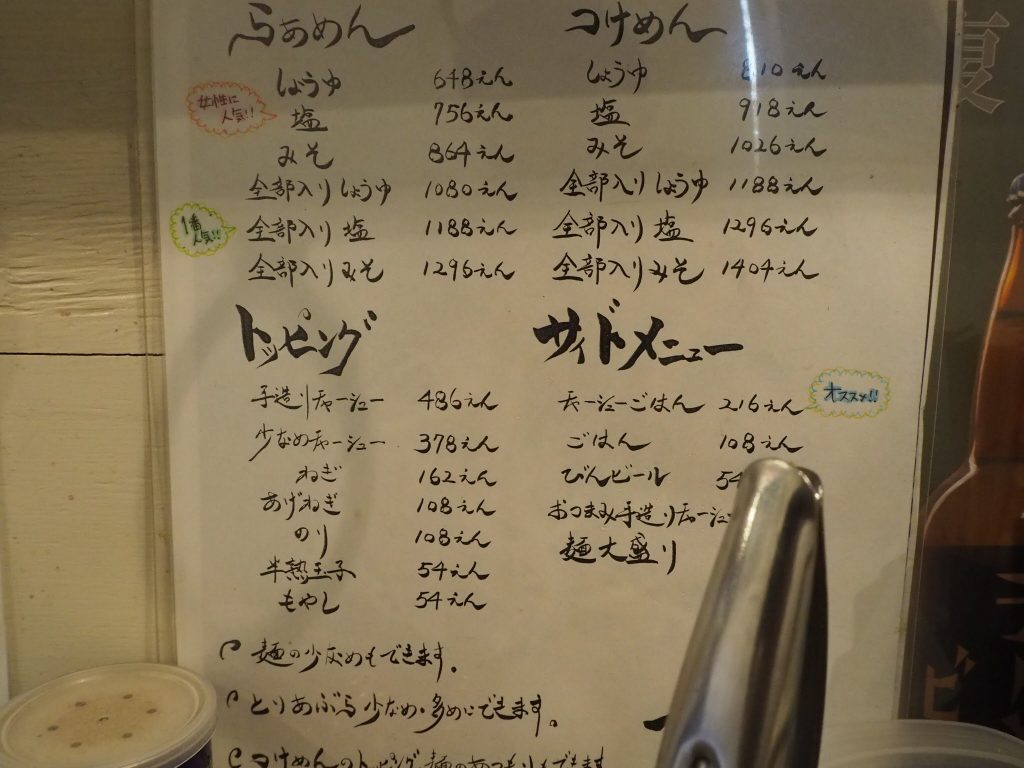 らぁめん
しょうゆ 648えん
女性に
人気!!
塩 756えん
みそ 864えん
全部入りしょうゆ 1080えん
1番
人気!!
全部入り塩 1188えん
全部入りみそ 1296えん
つけめん
しょうゆ 810えん
塩 918えん
みそ 1026えん
全部入りしょうゆ 1188えん
全部入り塩 1296えん
全部入りみそ 1404えん
トッピング
手造りチャーシュー 486えん
少なめチャーシュー 378えん
ねぎ 162えん
あげねぎ 108えん
のり 108えん
半熟玉子 54えん
もやし 54えん
サイドメニュー
チャーシューごはん 216えん
オススメ!!
ごはん 108えん
びんビール 54
おつまみ手造りチャーシュー
麺大盛り
麺の少なめもできます。
とりあぶら少なめ・多めにできます。
つけめんのトッピング、麺のあつもりもできます
夏
ビ